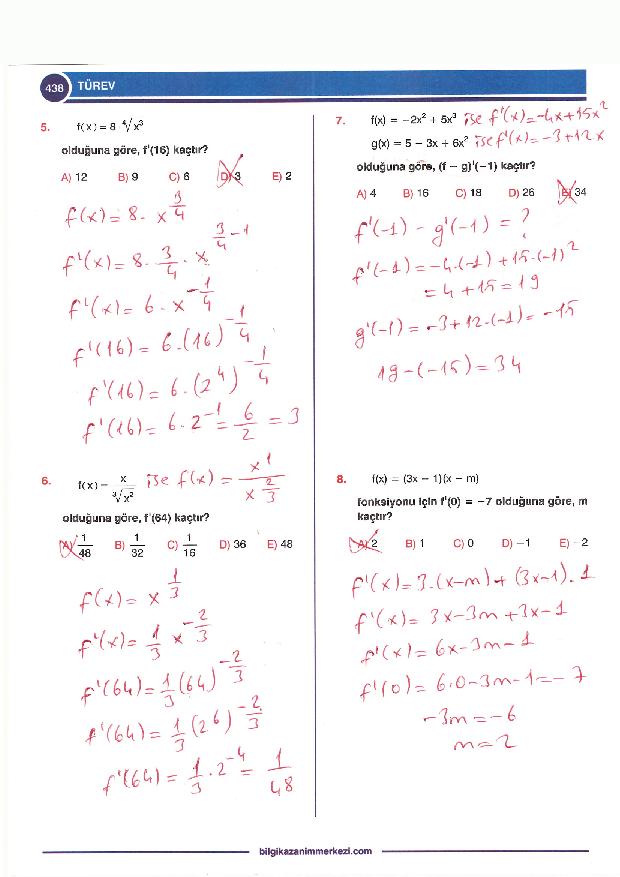 438 TÜREV
5. f(x) = 8 · ⁴√x³
olduğuna göre, f'(16) kaçtır?
A) 12 B) 9 C) 6 D) 3 E) 2
f(x) = 8 · x^(3/4)
f'(x) = 8 · 3/4 · x^(3/4 - 1)
f'(x) = 6 · x^(-1/4)
f'(16) = 6 · (16)^(-1/4)
f'(16) = 6 · (2⁴)^(-1/4)
f'(16) = 6 · 2⁻¹ = 6/2 = 3
6. f(x) = x/³√x² ise f(x) = x¹/x^(2/3)
olduğuna göre, f'(64) kaçtır?
A) 1/48 B) 1/32 C) 1/16 D) 36 E) 48
f(x) = x^(1/3)
f'(x) = 1/3 x^(-2/3)
f'(64) = 1/3 (64)^(-2/3)
f'(64) = 1/3 (2⁶)^(-2/3)
f'(64) = 1/3 · 2⁻⁴ = 1/48
7. f(x) = −2x² + 5x³ ise f'(x) = -4x + 15x²
g(x) = 5 − 3x + 6x² ise f'(x) = -3 + 12x
olduğuna göre, (f − g)'(−1) kaçtır?
A) 4 B) 16 C) 18 D) 26 E) 34
f'(-1) - g'(-1) = ?
f'(-1) = -4·(-1) + 15·(-1)²
= 4 + 15 = 19
g'(-1) = -3 + 12·(-1) = -15
19 - (-15) = 34
8. f(x) = (3x − 1)(x − m)
fonksiyonu için f'(0) = −7 olduğuna göre, m
kaçtır?
A) 2 B) 1 C) 0 D) −1 E) −2
f'(x) = 3·(x-m) + (3x-1)·1
f'(x) = 3x - 3m + 3x - 1
f'(x) = 6x - 3m - 1
f'(0) = 6·0 - 3m - 1 = -7
-3m = -6
m = 2
bilgikazanimmerkezi.com